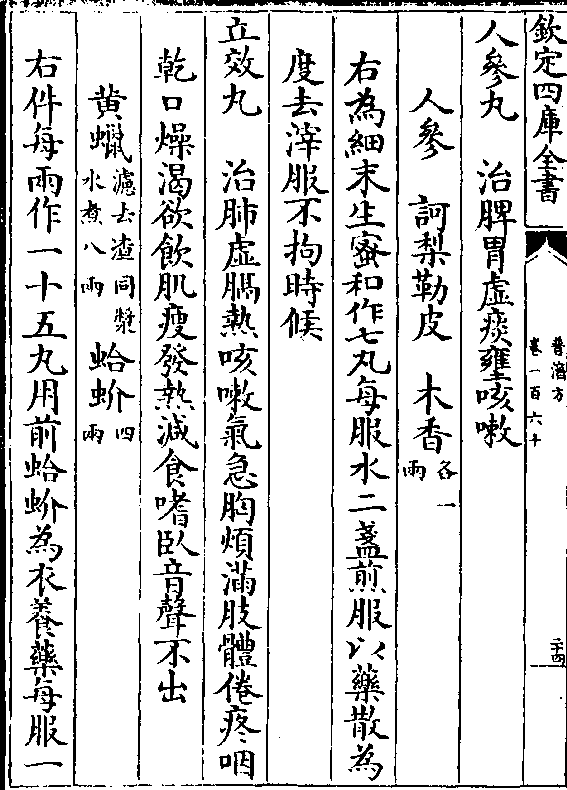 欽定四庫全書
普濟方
卷一百六十
二十四
人參丸　治脾胃虛痰壅咳嗽
人參　訶梨勒皮　木香各一兩
右為細末生蜜和作七丸每服水二盞煎服以藥散為
度去滓服不拘時候
立效丸　治肺虛膈熱咳嗽氣急胸煩滿肢體倦疼咽
乾口燥渴欲飲肌瘦發熱減食嗜臥音聲不出
黃蠟濾去渣同漿水煮八兩　蛤蚧四兩
右件每兩作一十五丸用前蛤蚧為衣養藥每服一